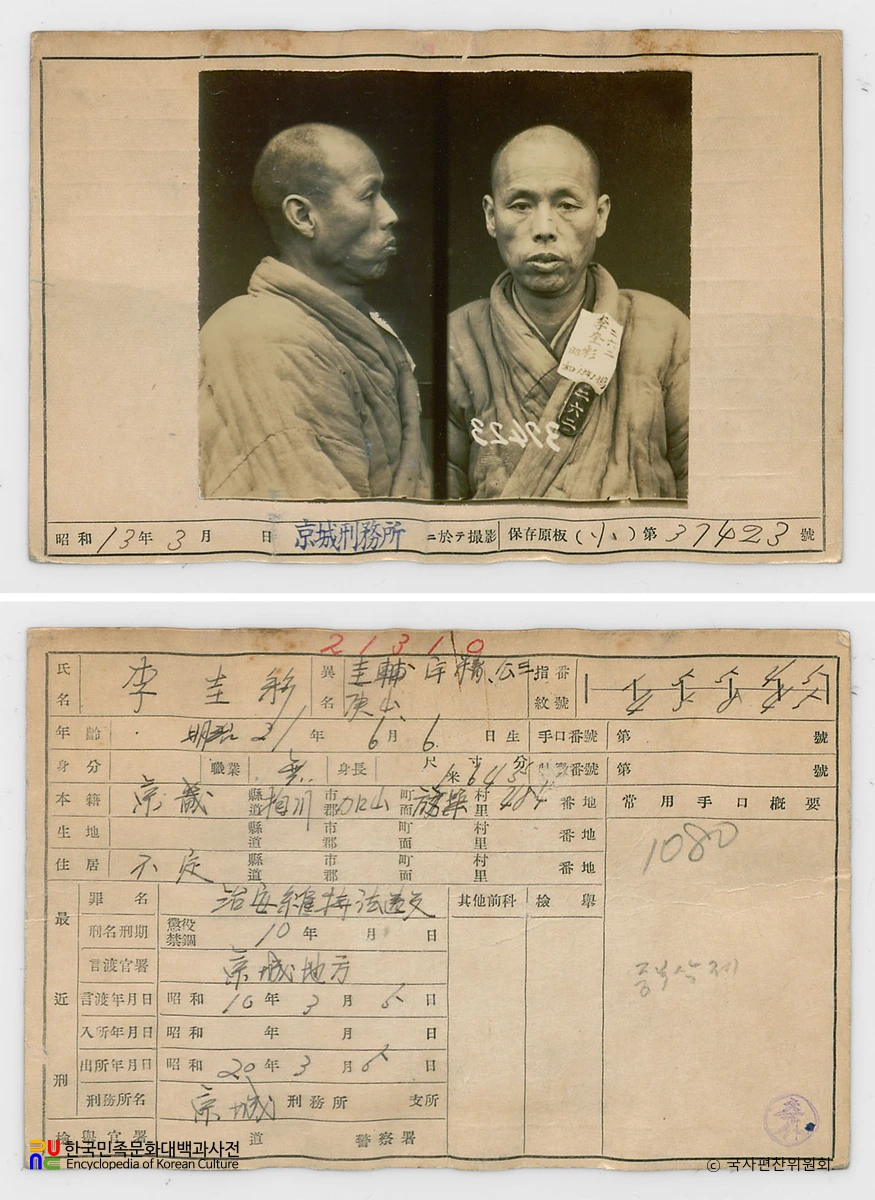 李圭彩
二六二
37423
昭和13年3月 日 京城刑務所 ニ於テ撮影 保存原板(小)第37423號
21310
氏名 李 圭 彩 異名 圭輔 指紋番號
年齡 明治 年 6月 6 日生 手口番號 第 號
身分 職業 無 身長 尺寸分 米 第 號
本籍 京畿 縣道 市郡 町面 村里 番地 常用手口概要
生地 縣道 市郡 町面 村里 番地
1080
住居 不定 縣道 市郡 町面 村里 番地
最近刑
罪名 治安維持法違反 其他前科 檢擧
刑名刑期 懲役 禁錮 10年 月 日
言渡官署 京城地方
중복삭제
言渡年月日 昭和10年3月5日
入所年月日 昭和 年 月 日
出所年月日 昭和20年3月5日
刑務所名 京城 刑務所 支所
檢擧官署 道 警察署
한국민족문화대백과사전
Encyclopedia of Korean Culture
© 국사편찬위원회